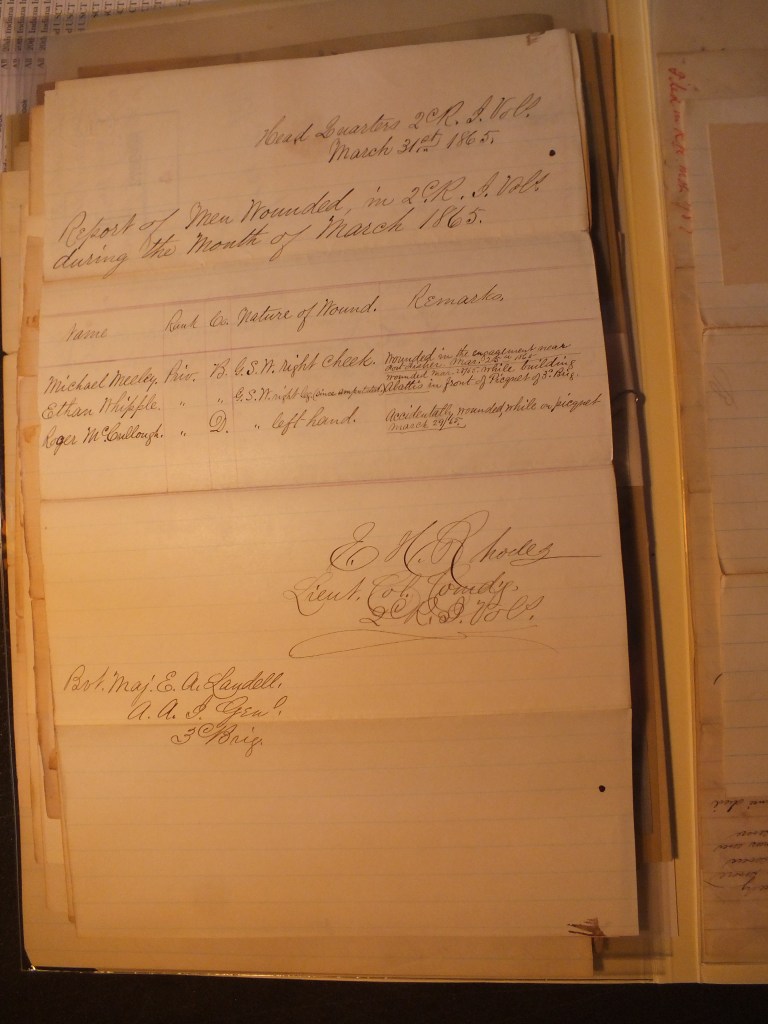 Head Quarters 2d R. I. Vols.
March 31st 1865.
Report of Men Wounded, in 2d R. I. Vols.
during the Month of March 1865.
Name Rank Co. Nature of Wound. Remarks.
Michael Meeley. Priv. B. G. S. W. right Cheek. Wounded in the engagement near
Fort Fisher Mar. 25th 1865
Ethan Whipple. " " G. S. W. right leg (since amputated) Wounded Mar. 28/65 while building
Abattis in front of Picquet of 3d Brig.
Roger McCullough. " D. " left hand. Accidentally wounded, while on picquet
March 29/65.
E. H. Rhodes
Lieut. Col. Comdg.
2d R. I. Vols.
Bvt. Maj. E. A. Landell.
A. A. I. Genl.
3d Brig.